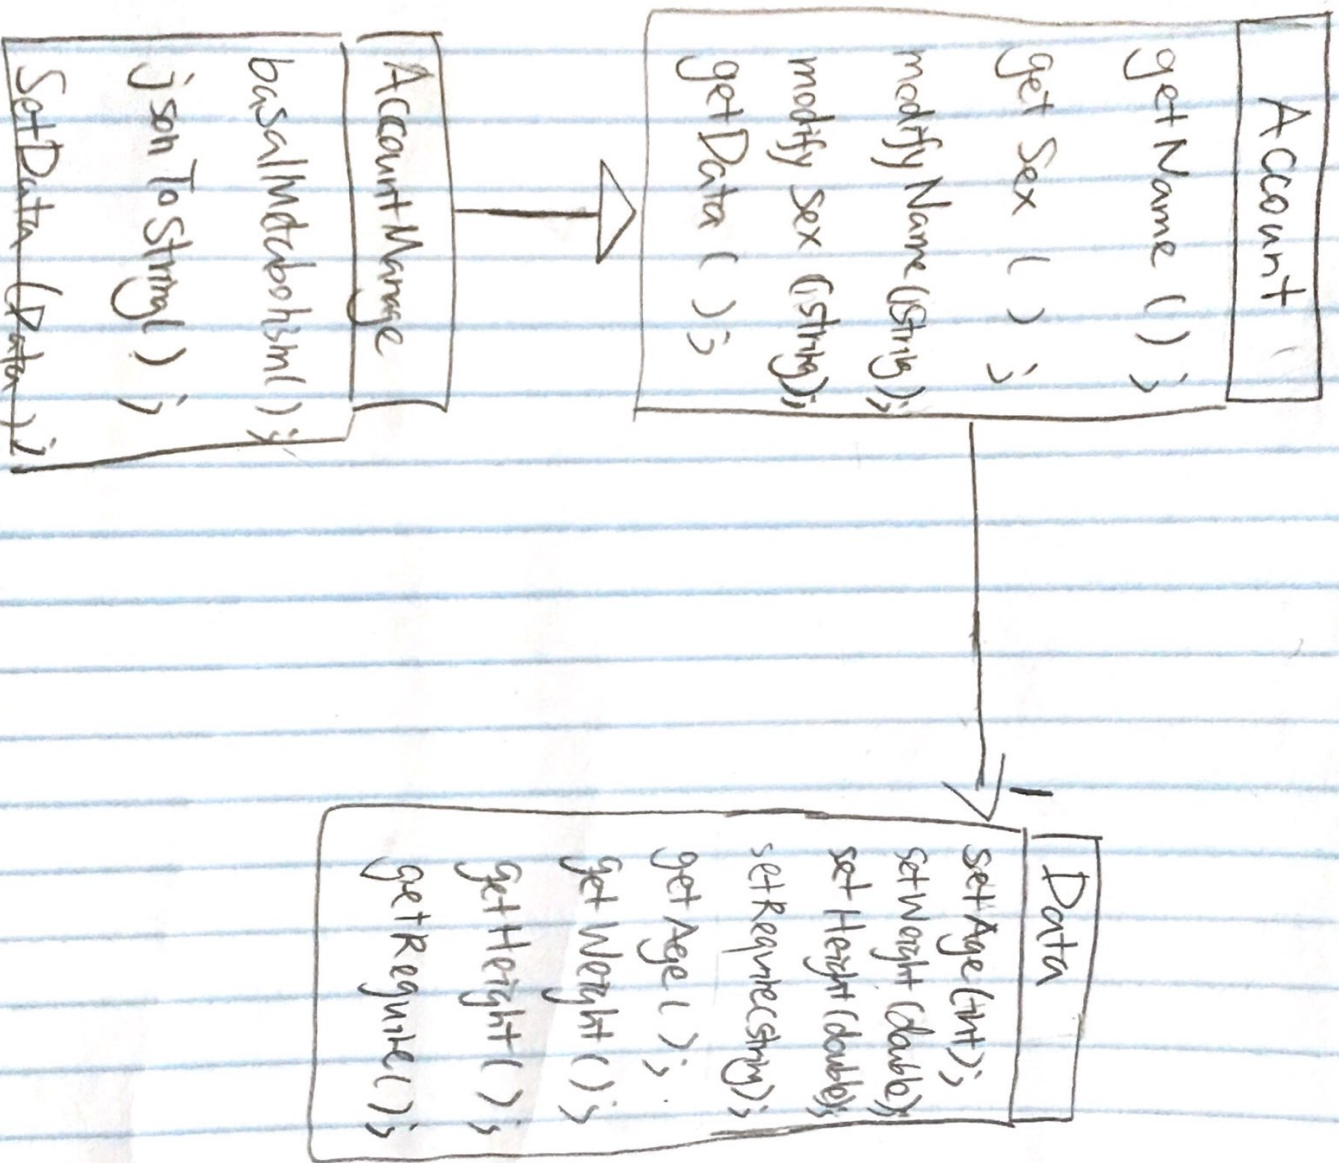 Account
getName ( ) ;
get Sex ( ) ;
modifyName(String);
modify Sex (String);
getData ( ) ;
AccountManage
basalMetabolism( );
json To String( ) ;
SetData (Data) ;
Data
setAge(int);
setWeight(double);
setHeight(double);
setRequire(string);
getAge( );
getWeight( );
getHeight( );
getRequire( );